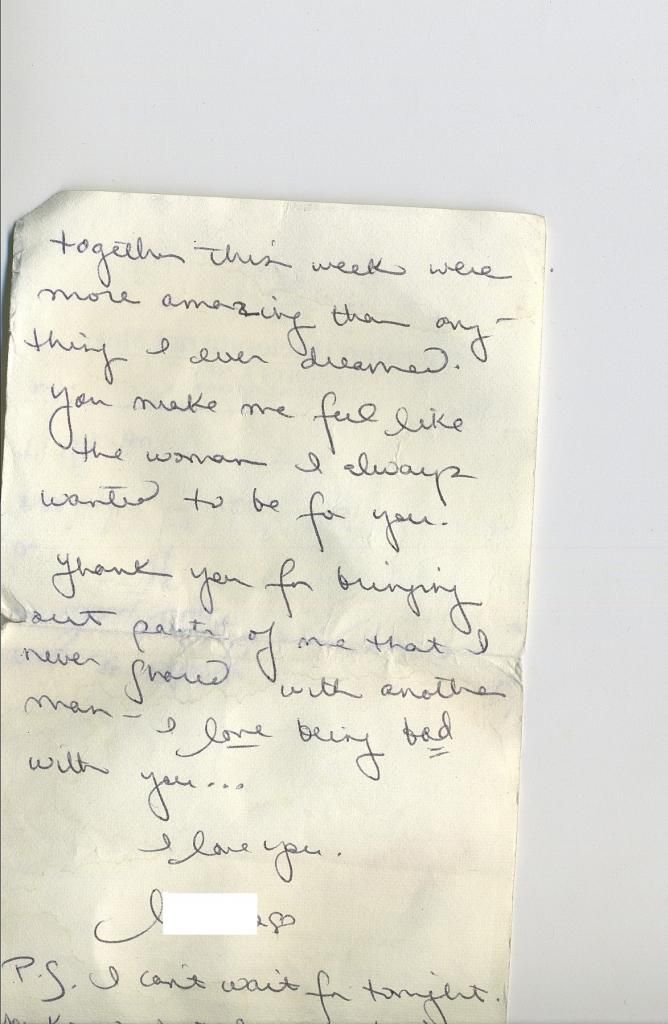 together this week were
more amazing than any-
thing I ever dreamed.
You make me feel like
the woman I always
wanted to be for you.
Thank you for bringing
out parts of me that I
never shared with another
man - I love being bad
with you...
I love you.
P.S. I can't wait for tonight.